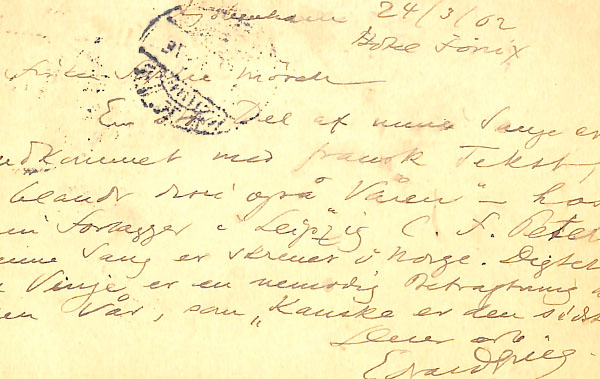 24/3/02
Hotel Fönix
Del af mine Sange er
udkommet med fransk Tekst,
blandt dem også "Våren" – hos
min Forlægger i Leipzig C. F. Peter
Sang er skrevet i Norge. Digtet
Vinje er en vemodig Betragtning
en Vår, som "Kanske er den sidst
Deres erb
Edvard Grieg.